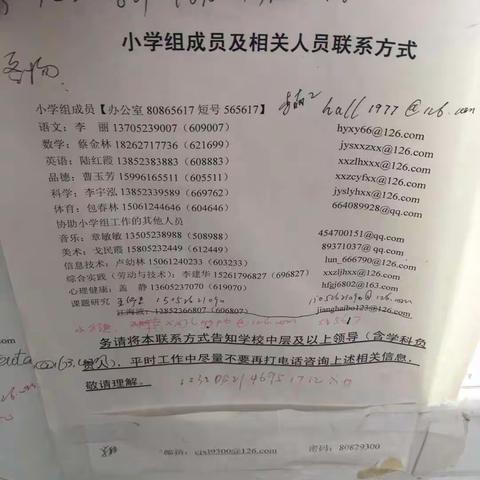 小学组成员及相关人员联系方式
小学组成员【办公室 80865617 短号 565617】 hall1977@126.com
语文：李 丽 13705239007（609007） hyxy66@126.com
数学：蔡金林 18262717736（621699） jysxxzxx@126.com
英语：陆红霞 13852383883（608883） xxzlhxxx@126.com
品德：曹玉芳 15996165511（605511） xxzcyfxx@126.com
科学：李宇泓 13852339589（669762） jyslyhxx@126.com
体育：包春林 15061244646（604646） 664089928@qq.com
协助小学组工作的其他人员
音乐：章敏敏 13505238988（508988） 454700151@qq.com
美术：戈民霞 15805232449（612449） 89371037@qq.com
信息技术：卢幼林 15061240233（603233） lun_666790@126.com
综合实践（劳动与技术）：李建华 15261796827（696827） xxzljhxx@126.com
心理健康：孟 静 13605237070（619070） hfgj6802@163.com
课题研究 15052621090 15052621090@126.com
江海波：13852366807（606807） jianghaibo123@126.com
务请将本联系方式告知学校中层及以上领导（含学科负
责人），平时工作中尽量不要再打电话咨询上述相关信息，
敬请理解。
邮箱：cjxl9300@126.com 密码：80829300